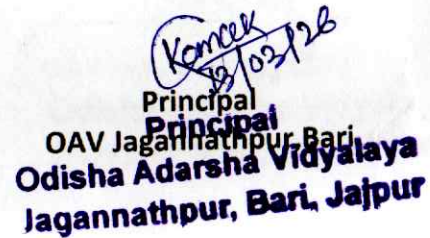 13/03/26
Principal
OAV Jagannathpur, Bari
Principal
Odisha Adarsha Vidyalaya
Jagannathpur, Bari, Jajpur